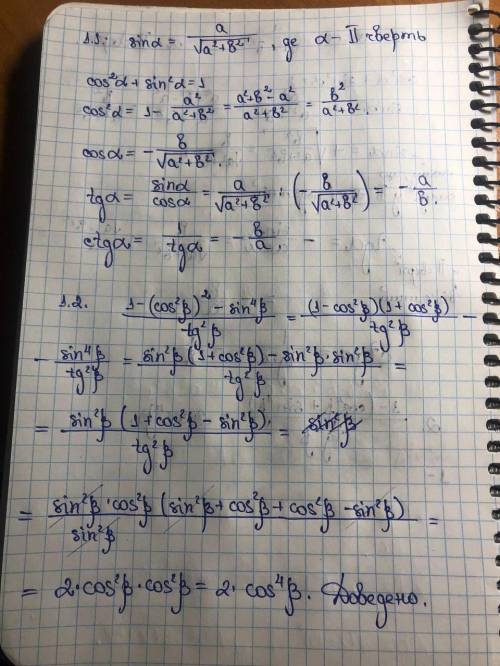 1.1. sinα = a/√(a²+b²), де α – II чверть
cos²α + sin²α = 1
cos²α = 1 - a²/(a²+b²) = (a²+b²-a²)/(a²+b²) = b²/(a²+b²).
cosα = - b/√(a²+b²).
tgα = sinα/cosα = a/√(a²+b²) : (- b/√(a²+b²)) = - a/b.
ctgα = 1/tgα = - b/a. -
1.2. (1-(cos²β)² - sin⁴β)/tg²β = ((1-cos²β)(1+cos²β))/tg²β -
- sin⁴β/tg²β = (sin²β(1+cos²β) - sin²β·sin²β)/tg²β =
= (sin²β(1+cos²β - sin²β))/tg²β = sin²β
= (sin²β·cos²β(sin²β+cos²β+cos²β-sin²β))/sin²β =
= 2·cos²β·cos²β = 2·cos⁴β. Доведено.